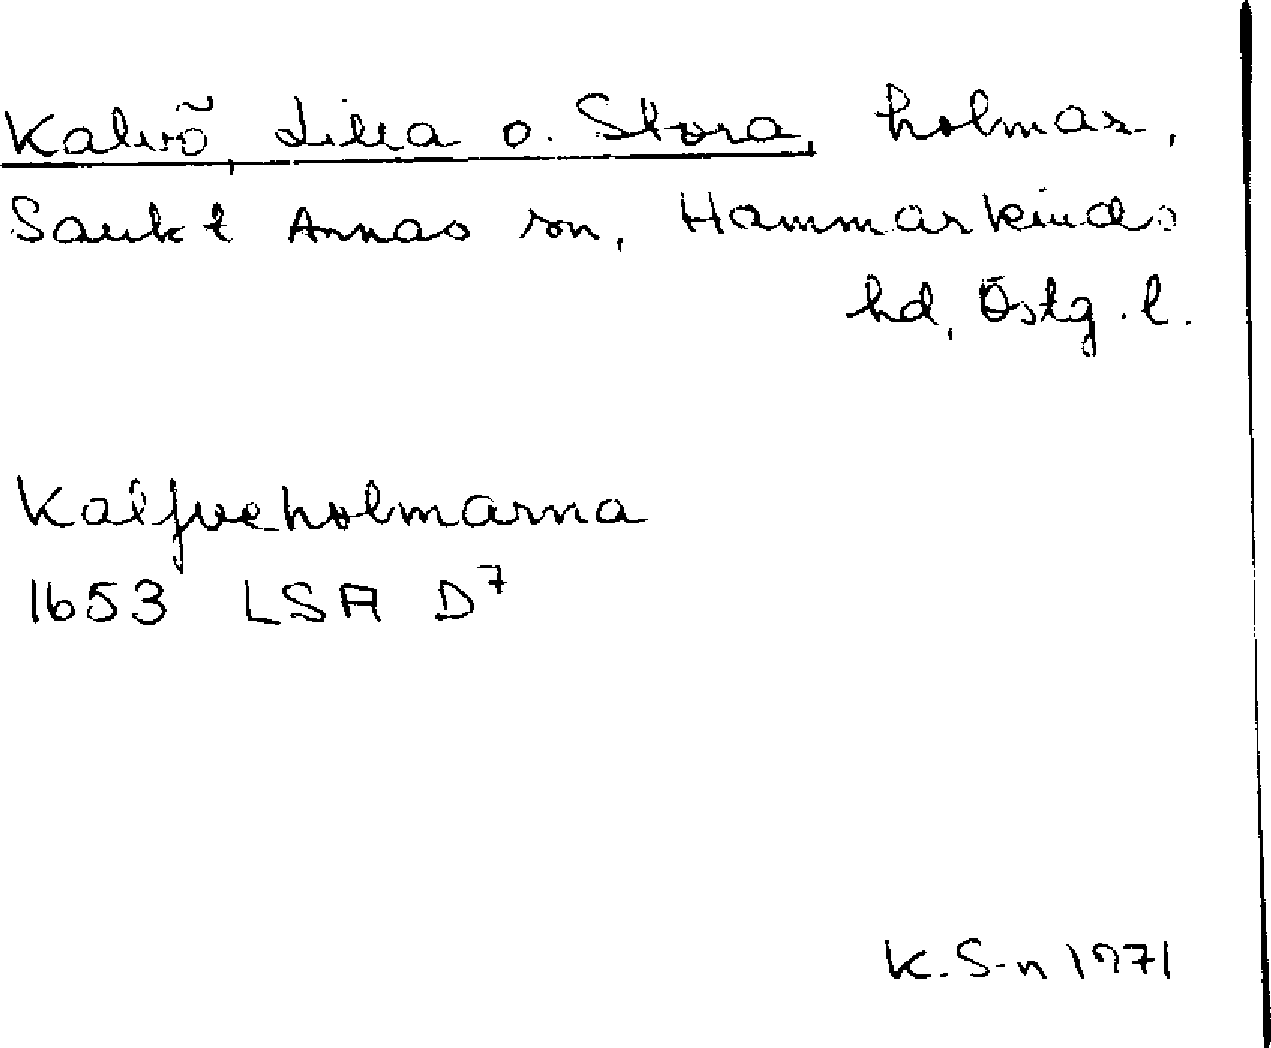 Kalvö, Lilla o. Stora, holmar,
Sankt Annas sn, Hammarkinds
hd, Östg. l.
Kalfveholmarna
1653 LSA D7
K. S-n 1971